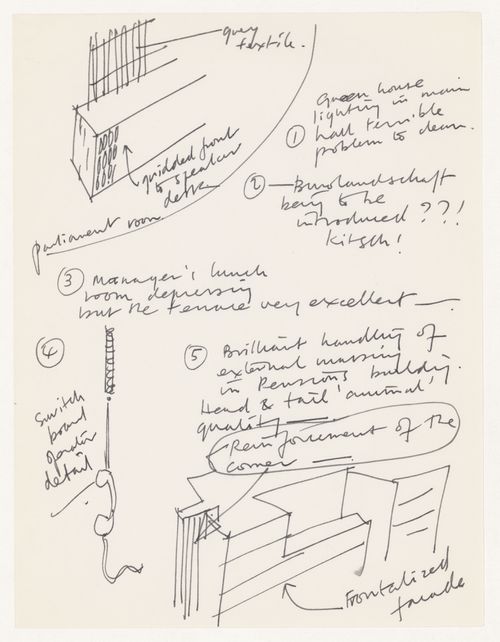 grey
textile.
gridded front
to speaker
parliament room
① Green house
lighting in main
hall terrible
problem to clean.
② — Burolandschaft
being to be
introduced ??!
Kitsch!
③ Manager's lunch
room depressing
but the terrace very excellent —.
④
Switch
board
operator
detail
⑤ Brilliant handling of
external massing
in Pensions building.
Head & tail 'animal'
quality —
Reinforcement of the
corner —
Frontalized
facade